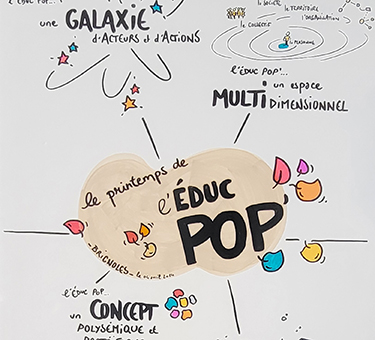 l'éduc pop'...
une GALAXIE
d'ACTEURS et d'ACTIONS
la société
le territoire
l'organisation
le collectif
la personne
l'éduc pop'...
un espace
MULTIDIMENSIONNEL
le printemps de
l'ÉDUC
POP'
- BRIGNOLES -
l'éduc pop'...
un CONCEPT
POLYSÉMIQUE et